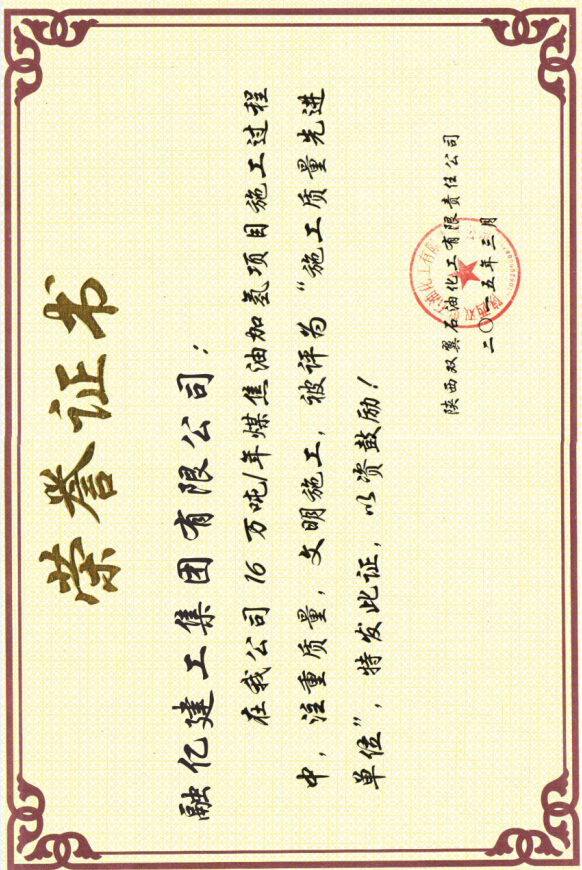 荣誉证书
融亿建工集团有限公司：
在我公司16万吨/年煤焦油加氢项目施工过程
中，注重质量，文明施工，被评为“施工质量先进
单位”，特发此证，以资鼓励！
陕西双翼石油化工有限责任公司
二〇一五年三月